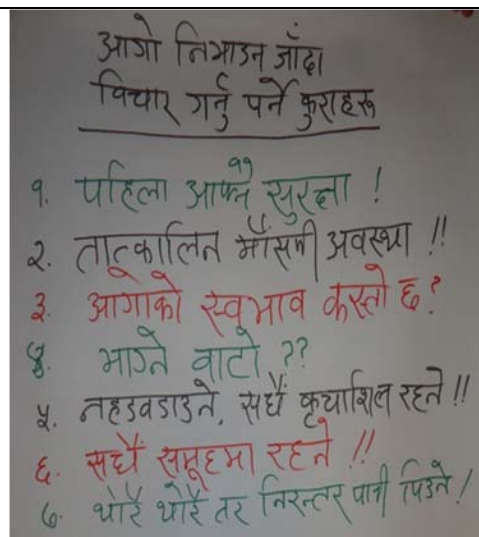 आगो निभाउन जाँदा
विचार गर्नु पर्ने कुराहरू
१. पहिला आफ्नै सुरक्षा !
२. तात्कालिन मौसमी अवस्था !!
३. आगोको स्वभाव कस्तो छ ?
४. भाग्ने वाटो ??
५. नहडवडाउने, सधैं कृयाशिल रहने !!
६. सधैं समूहमा रहने !!
७. थोरै थोरै तर निरन्तर पानी पिउने !